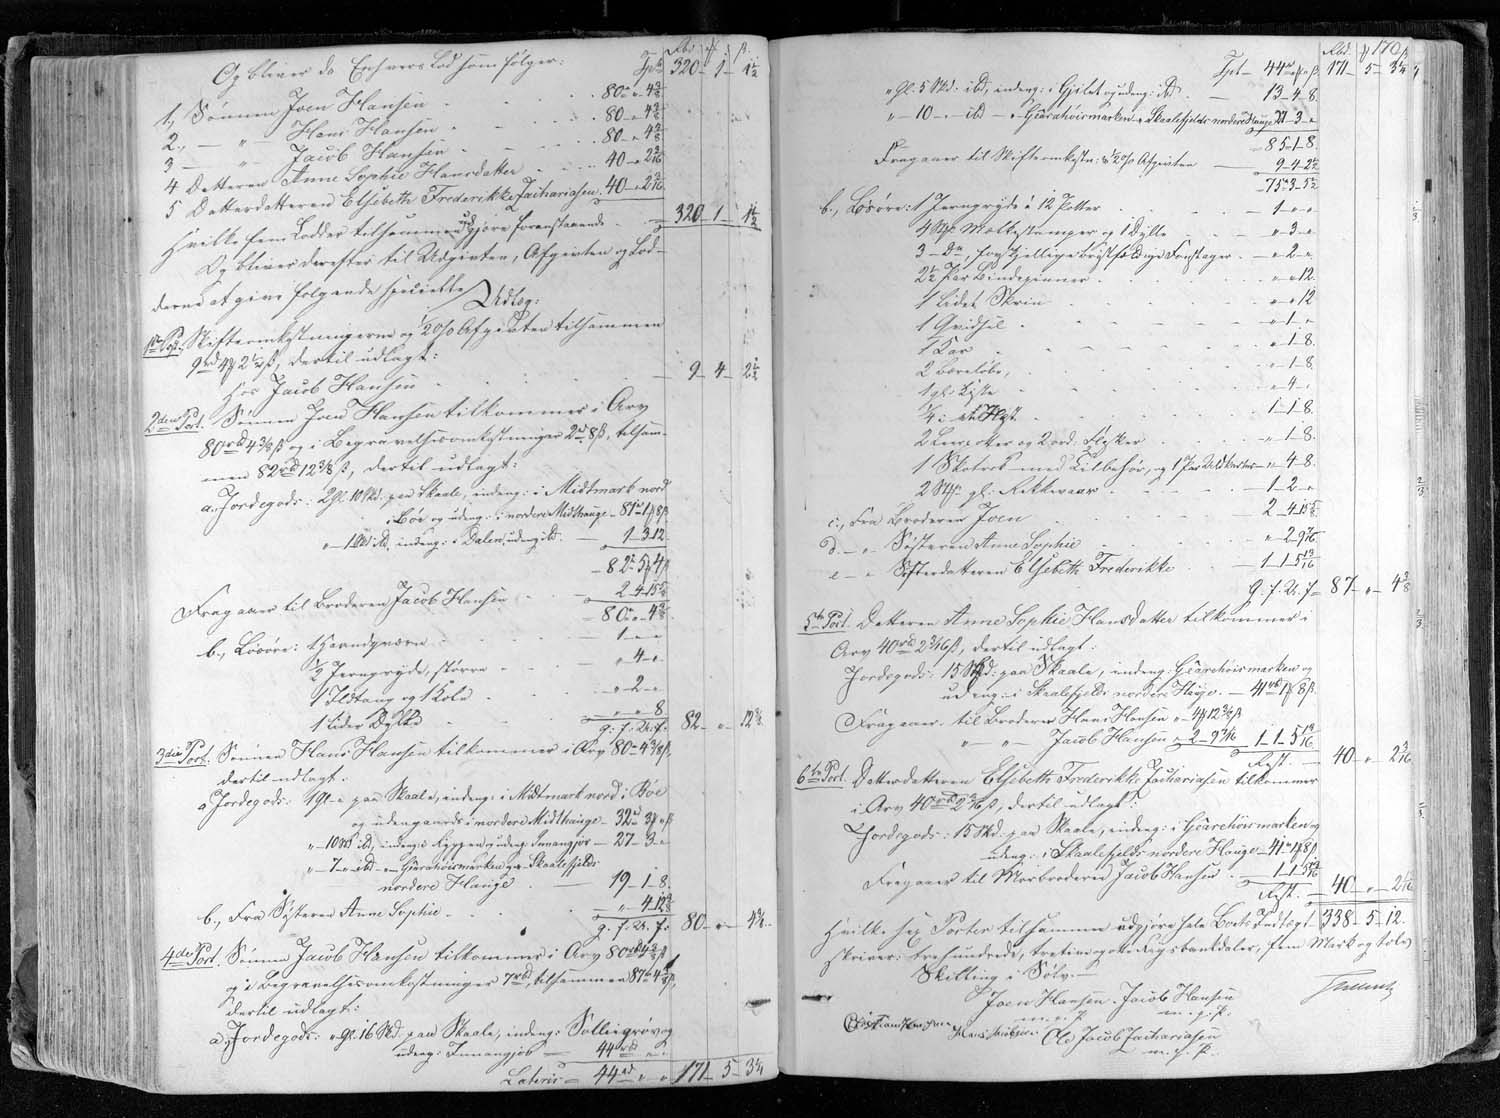 Rbd. ₰ ß.
Og bliver da Enhvers Lod som følger: Tpt 320 - 1 - 1½
1, Sønnen Joen Hansen 80 " 4⅜
2, — " Hans Hansen 80 " 4⅜
3 — " Jacob Hansen 80 " 4⅜
4 Datteren Anne Sophie Hansdatter 40 " 2 3/16
5 Datterdatteren Elsebeth Frederikke Zachariasen 40 " 2 3/16
Hvilke fem Lodder tilsammen udgjøre forenstaaende 320 - 1 - 1½
Og blives derefter til Udgivten, Afgivten og Lod-
derne at give følgende specielle
Udlæg:
1ste Post. Skifteomkostningerne og ½ % Afgivten tilsammen
9 rbd 4 ₰ 2½ ß, dertil udlagt:
Hos Jacob Hansen 9 - 4 - 2½
2den Post. Sønnen Joen Hansen tilkommer i Arv
80 rbd 4⅜ ß og i Begravelsesomkostninger 2 rd 8 ß, tilsam-
men 82 rbd 12⅜ ß, dertil udlagt:
a, Jordegods: 2 Gl. 10 Skd. paa Skaale, indeng: i Midtmark nord
i Bøe og udeng: i nordere Midthauge - 81 - 1 ₰ 8 ß
" - 1 Skd ibd, indeng: i Dalen, udeng ibd. - 1 - 3 - 12
82 - 5 ₰ 4 ß
Fragaaer til Broderen Jacob Hansen 2 - 4 - 15⅝
80 " 4⅜
b, Løsøre: 1 Haandqværn 1 - " - "
½ Jerngryde, større " 4 - "
1 Ildtang og 1 Kole " - 2 - "
1 Lider Dylle " " 8
g. f. Ur. f. 82 - " - 12⅜
3die Post. Sønnen Hans Hansen tilkommer i Arv 80 - 4⅜ ß,
dertil udlagt.
a Jordegods: 1 Gl - " paa Skaale, indeng: i Midtmark nord i Bøe
og udengaards i nordere Midthauge - 32 - 3 ₰ " ß
" - 10 Skd ibd, indeng: i Kyppen, udeng: Innangjov - 27 - 3 - "
" - 7 - " ibd - " Giærahøismarken og Skaalefjelds
nordere Hauge 19 - 1 - 8.
b, Fra Søsteren Anne Sophie " 4 12⅜
g. f. Ur. f. 80 - " - 4⅜
4de Post. Sønnen Jacob Hansen tilkommer i Arv 80 rbd 4⅜ ß
og i Begravelsesomkostninger 7 rbd, tilsammen 87 rbd 4⅜ ß,
dertil udlagt:
a, Jordegods: " Gl. 16 Skd. paa Skaale, indeng: Sølleigrøv og
udeng: Innangjob 44 rbd " "
Lateris - 44 rd " " 171 - 5 - 3¼
170
Rbd. ₰ ß
Tpt - 44 rd " ₰ " ß 171 - 5 - 3¼
" Gl: 5 Skd: ibd, indeng: i Gjilet og udeng: ibd. 13 - 4 - 8.
" - 10 - " ibd - " Giærahøismarken i Skaalefjelds nordere Hauge 27 - 3 - "
85 - 1 - 8.
Fragaaer til Skifteomkostn: & ½ % Afgivten 9 - 4 - 2½
75 - 3 - 5½
b, Løsøre: 1 Jerngryde à 12 Potter 1 - " - "
4 Stk. Mælkestamper og 1 Dylle " - 3 - "
3 - Do, forskjellige
2½ Par Bindepinner " - " 12.
1 lidet Skrin " - " 12
1 Qvidsil " 1 - "
1 Kar " 1 - 8.
2 Bæreløbe, " 1 - 8.
1 gl: Kiste " 4 - "
¼ i eet Hest 1 - 1 - 8.
2 Lurcoker og 2 ord: Flesker " 1 - 8.
1 Skotrok med Tilbehør, og 1 Par Uldkarter " 4 - 8.
2 Stk. gl: Rekkevaar 1 - 2 - "
c, Fra Broderen Joen 2 - 4 - 15⅝
d - " Søsteren Anne Sophie " 2 - 9 7/16
e - " Søsterdatteren Elsebeth Frederikke 1 - 1 - 5 13/16
g. f. Ur. f. 87 - " - 4⅜
5te Post. Datteren Anne Sophie Hansdatter tilkommer i
Arv 40 rbd 2 3/16 ß, dertil udlagt:
Jordegods: 15 Skd: paa Skaale, indeng: Giærahøismarken og
udeng: i Skaalefjelds nordere Hauge. - 41 rbd 1 ₰ 8 ß
Fragaaer til Broderen Hans Hansen " 4 ₰ 12⅜ ß
" - " Jacob Hansen " 2 - 9 7/16 1 - 1 - 5 13/16
Rest. 40 " 2 3/16
6te Post. Datterdatteren Elsebeth Frederikke Zachariasen tilkommer
i Arv 40 rbd 2 3/16 ß, dertil udlagt:
Jordegods: 15 Skd. paa Skaale, indeng: i Giærahøismarken og
udeng: i Skaalefjelds nordere Hauge - 41 rd 1 ₰ 8 ß
Fragaaer til Morbroderen Jacob Hansen 1 - 1 - 5 13/16
Rest. 40 - " - 2 3/16
Hvilke sex Poster tilsammen udgjøre hele Boets Indtægt 338 - 5 - 12.
skriver: trehundrede, tretive og otte Rigsbankdaler, fem Mark og tolv
Skilling i Sølv
Joen Hansen. Jacob Hansen
m. f. P. m. f. P.
Hans Jacobsen Ole Jacob Zachariasen
m. f. P.